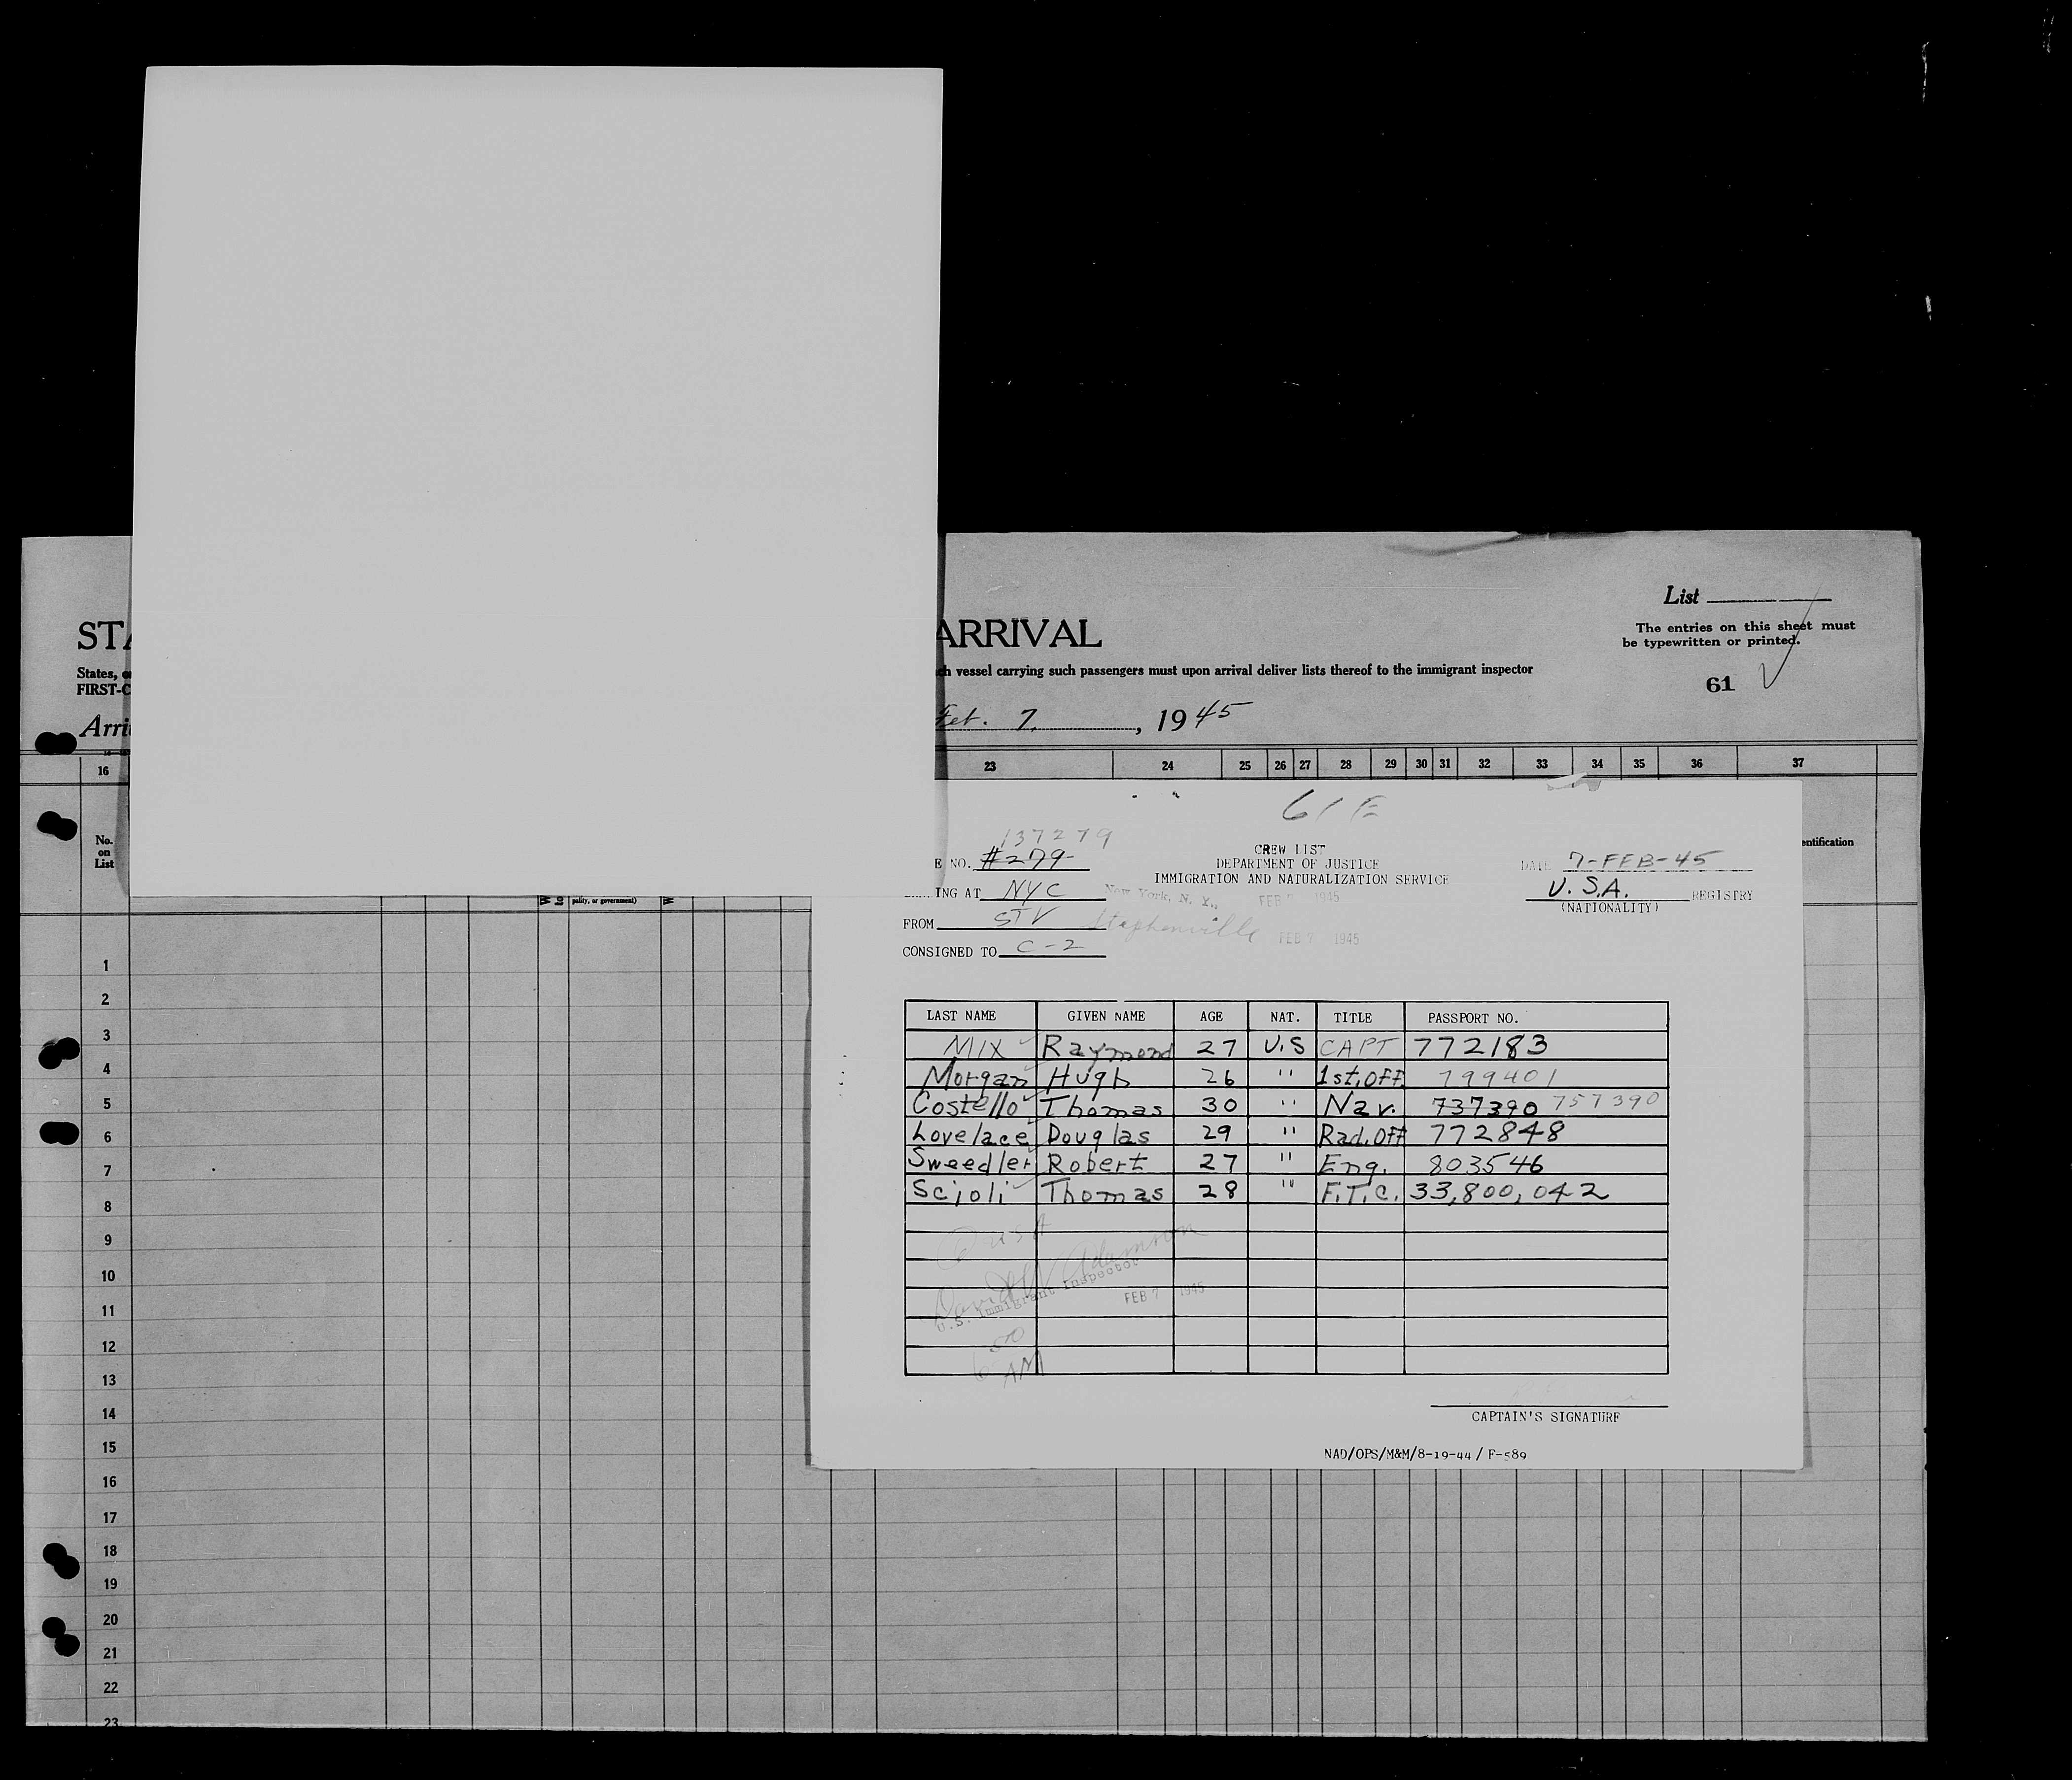 List
The entries on this sheet must
be typewritten or printed.
61
STA ARRIVAL
States, o ch vessel carrying such passengers must upon arrival deliver lists thereof to the immigrant inspector
FIRST-C
Arri Feb. 7, , 1945
16 23 24 25 26 27 28 29 30 31 32 33 34 35 36 37
No.
on
List
entification
pality, or government)
61 E
137279
E NO. #279
CREW LIST
DEPARTMENT OF JUSTICE
IMMIGRATION AND NATURALIZATION SERVICE
DATE 7-FEB-45
U.S.A. REGISTRY
(NATIONALITY)
ING AT NYC New York, N. Y., FEB 7 1945
FROM STV Stephenville FEB 7 1945
CONSIGNED TO C-2
LAST NAME GIVEN NAME AGE NAT. TITLE PASSPORT NO.
MIX Raymond 27 U.S CAPT 772183
Morgan Hugh 26 " 1st. Off. 799401
Costello Thomas 30 " Nav. 737390 757390
Lovelace Douglas 29 " Rad. Off 772848
Sweedler Robert 27 " Eng. 803546
Scioli Thomas 28 " F.T.C. 33,800,042
David W Adamson
U.S. Immigrant Inspector
FEB 7 1945
AM
CAPTAIN'S SIGNATURE
NAD/OPS/M&M/8-19-44 / F-589
1
2
3
4
5
6
7
8
9
10
11
12
13
14
15
16
17
18
19
20
21
22
23